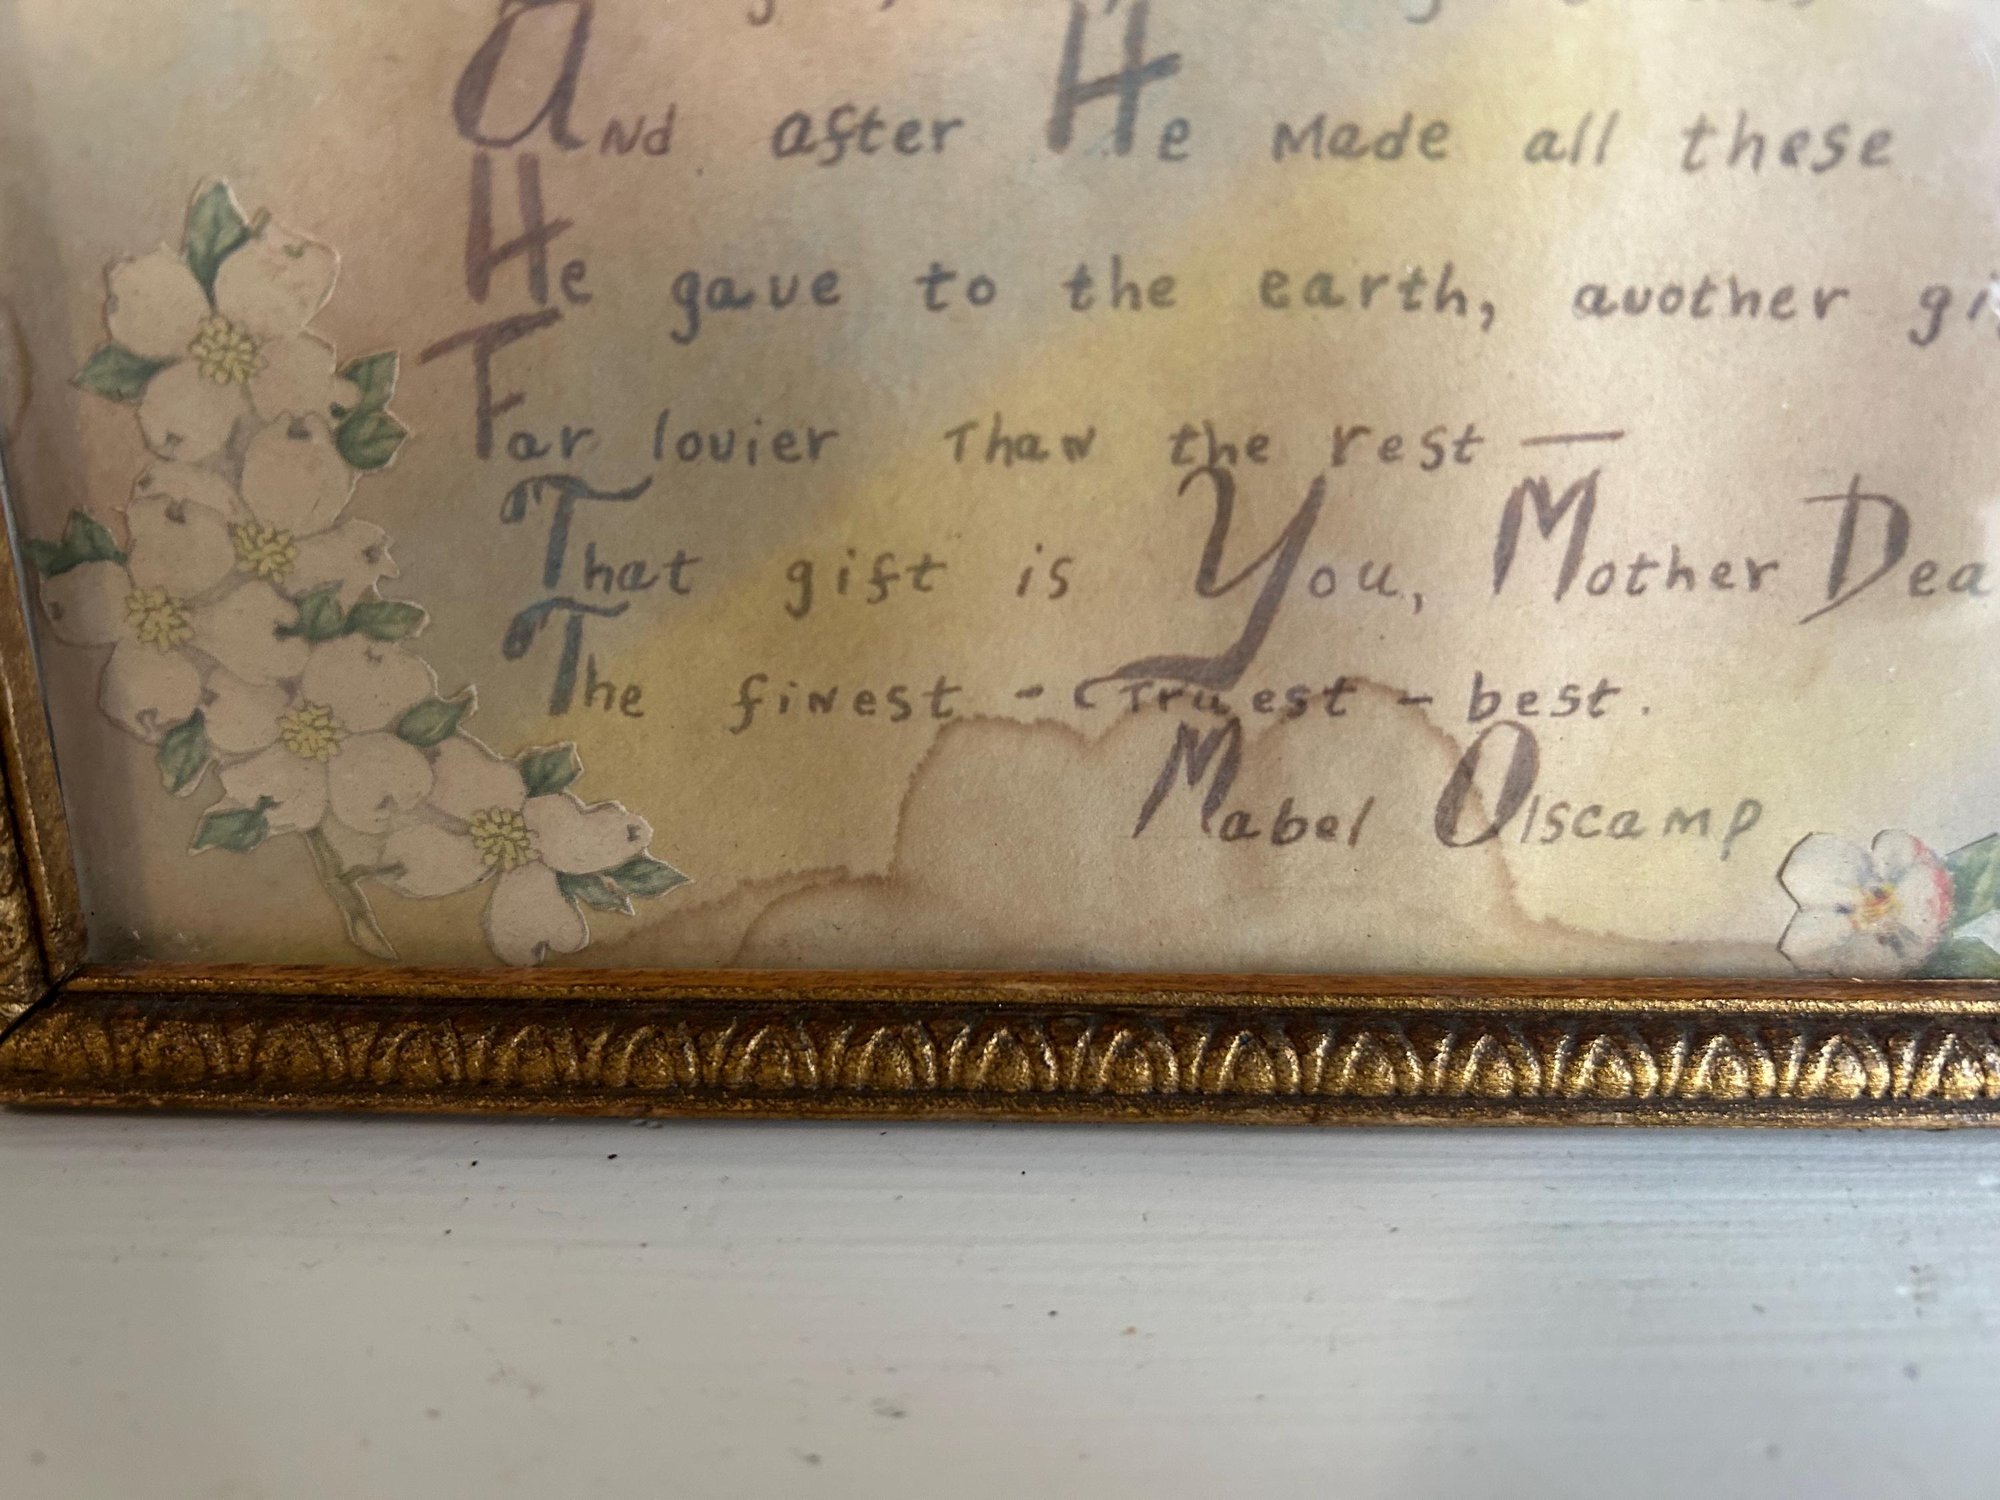 And after He made all these
He gave to the earth, auother
Far louier Than the rest —
That gift is You, Mother
The finest - Truest - best.
Mabel Olscamp